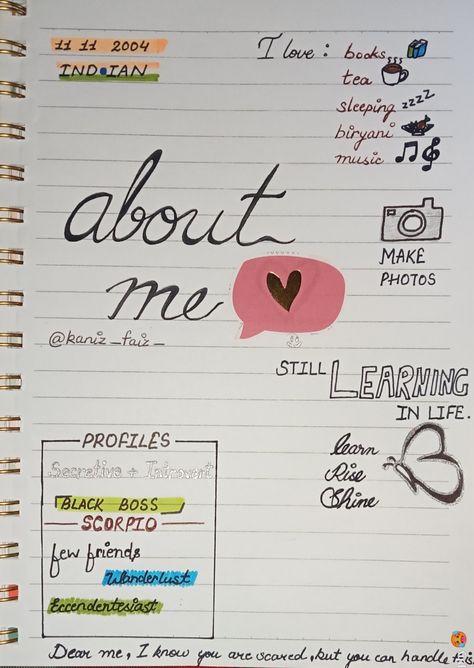 11 11 2004
INDIAN
I love : books
tea
sleeping zzzz
biryani
music
about
me
MAKE
PHOTOS
@kaniz_faiz_
STILL LEARNING
IN LIFE.
learn
Rise
Shine
PROFILES
Secretive + Introvert
BLACK BOSS
SCORPIO
few friends
Wanderlust
Eccendentesiast
Dear me, I know you are scared, but you can handle